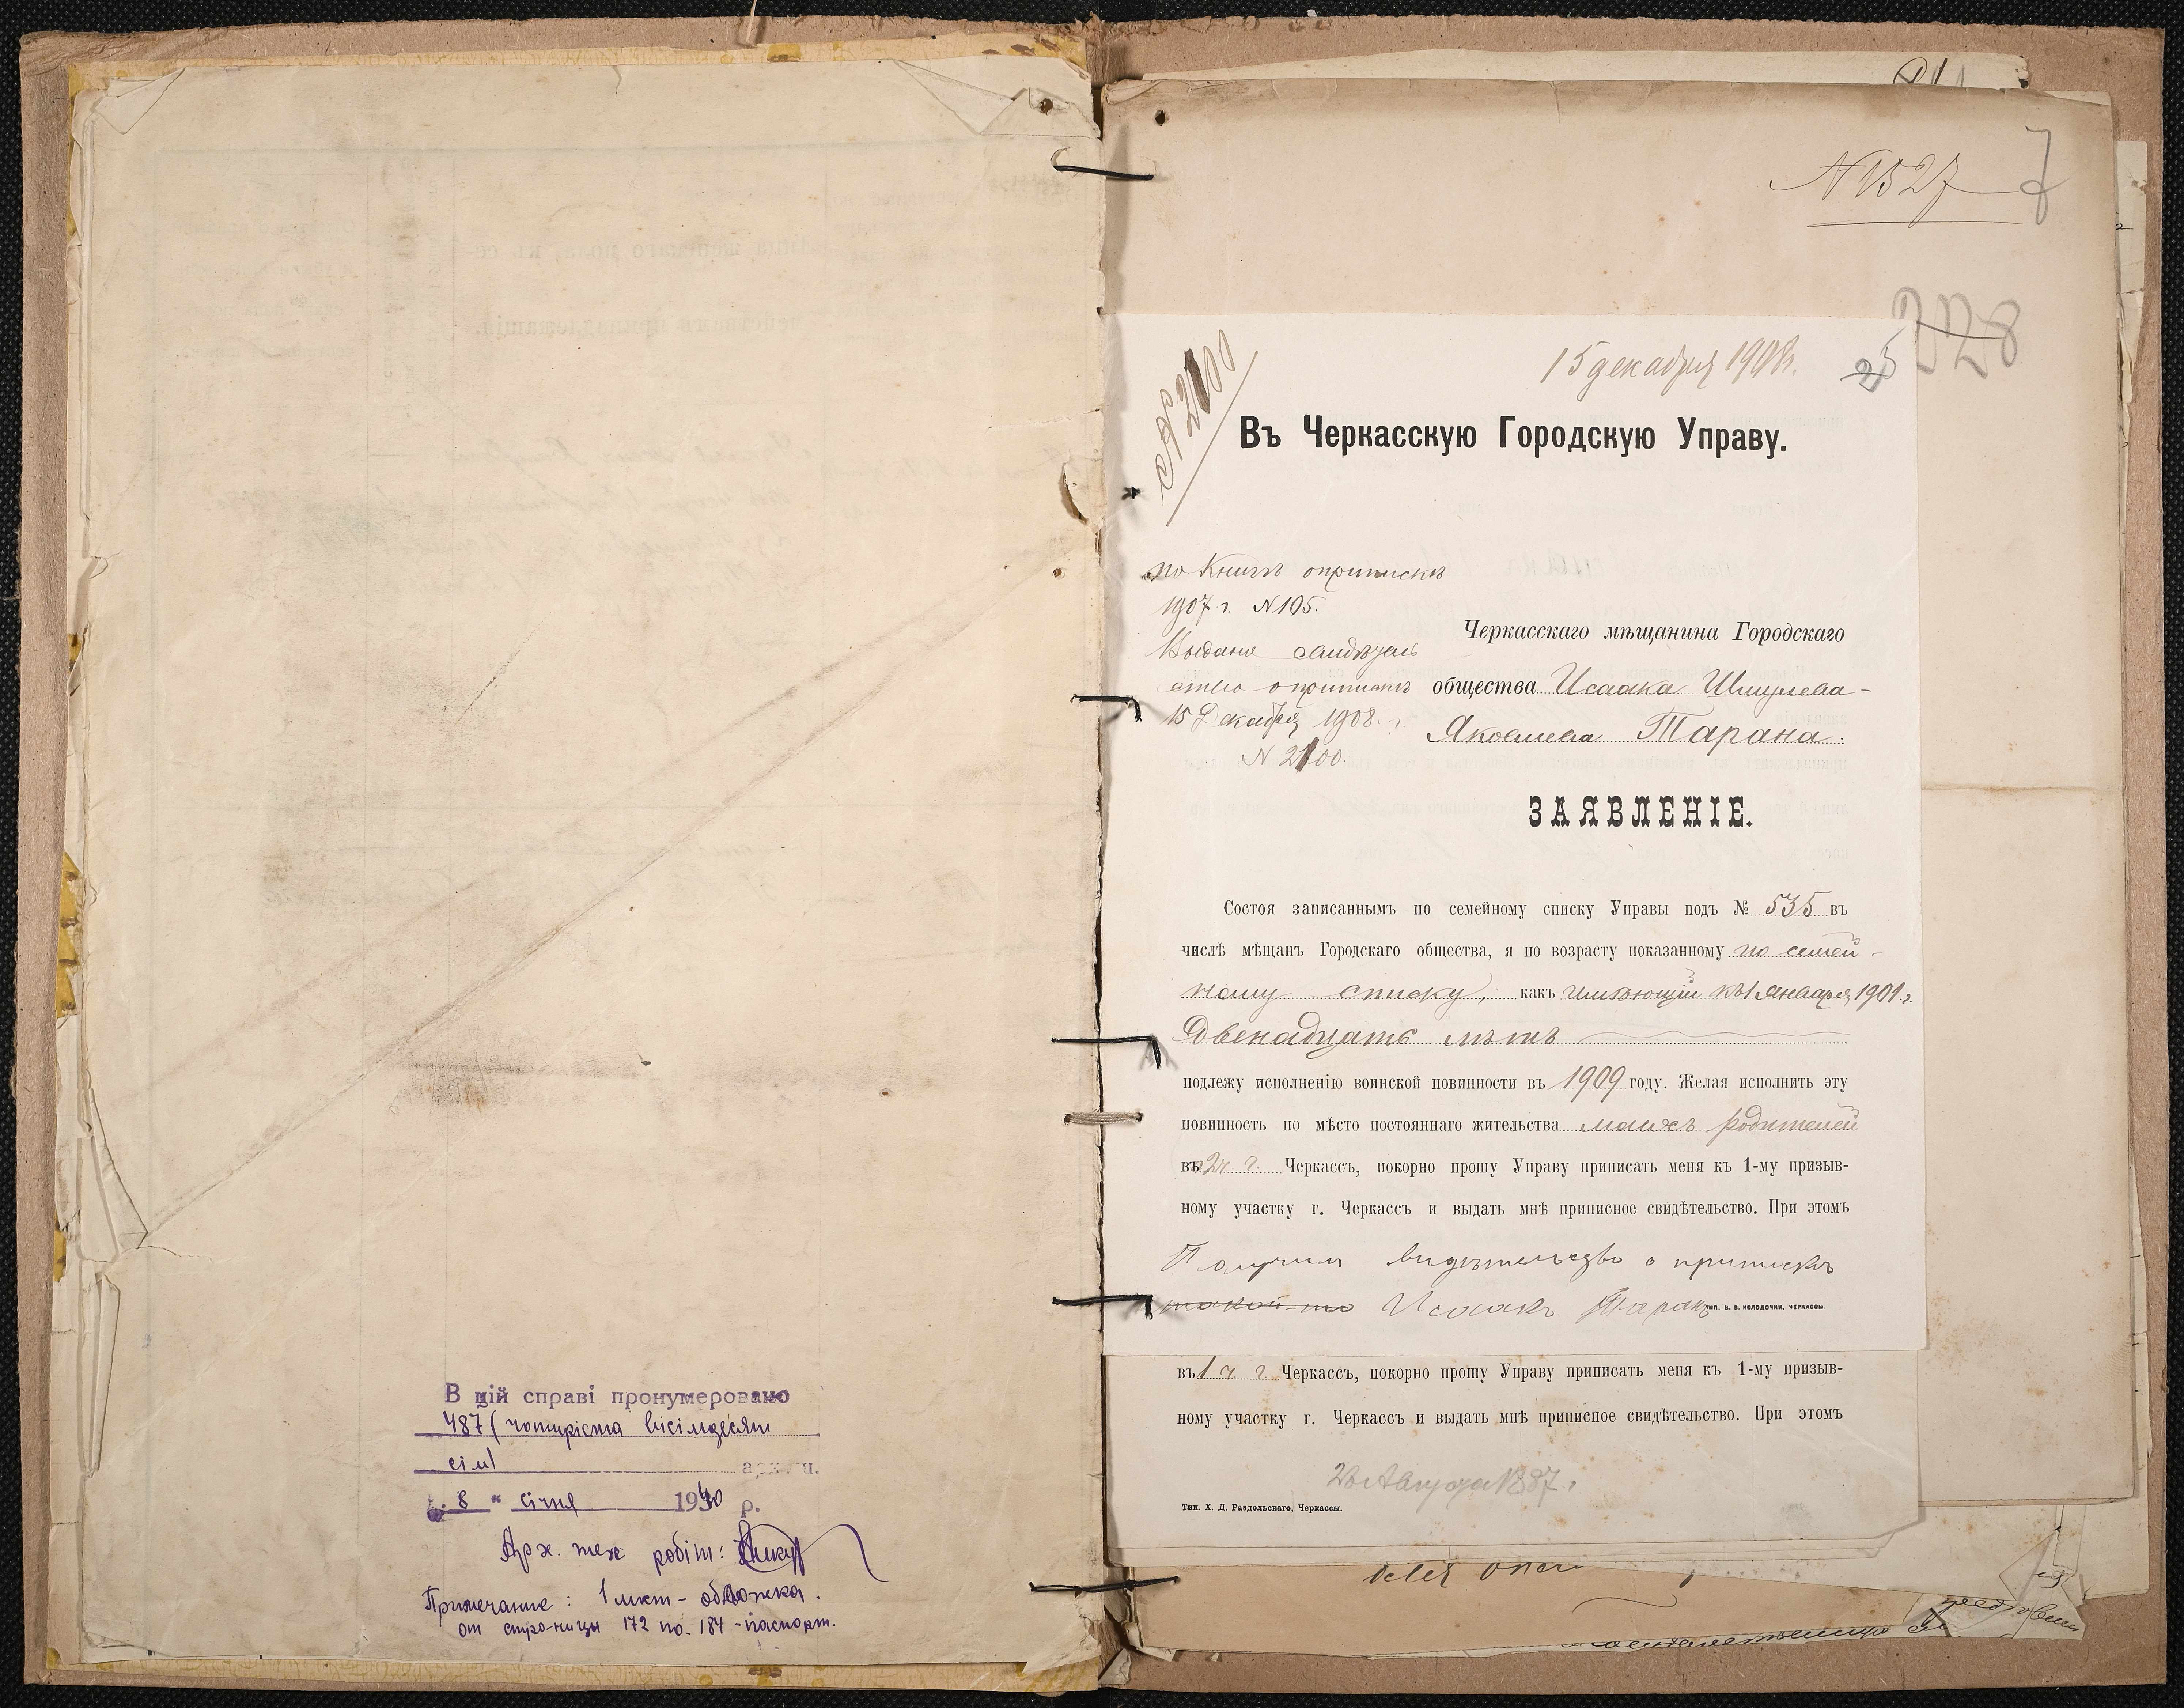 В цій справі пронумеровано
487 (чотириста вісімдесят
сім)
"8" січня 1940 р.
Арх. тех робіт:
Примечание: 1 лист - обложка.
от стро-ницы 172 по 184 - паспорт.
N 1527
7
328
15 декабря 1908 г.
25
N 2100
Въ Черкасскую Городскую Управу.
по Книгѣ о припискѣ
1907 г. N 105.
Выдано свидѣтель
ство о припискѣ
15 Декабря 1908 г.
N 2100.
Черкасскаго мѣщанина Городскаго
общества Исаака Шмулева-
Яковлева Тарана.
ЗАЯВЛЕНІЕ.
Состоя записаннымъ по семейному списку Управы подъ № 535 въ
числѣ мѣщанъ Городскаго общества, я по возрасту показанному по семей-
ному списку, какъ имѣющій къ 1 Января 1901 г.
Двенадцать лѣтъ
подлежу исполненію воинской повинности въ 1909 году. Желая исполнить эту
повинность по мѣсто постояннаго жительства моихъ родителей
въ 2 ч. г. Черкассъ, покорно прошу Управу приписать меня къ 1-му призыв-
ному участку г. Черкассъ и выдать мнѣ приписное свидѣтельство. При этомъ
Получил видѣтельство о припискѣ
Исаакъ Таранъ
въ 1 ч г Черкассъ, покорно прошу Управу приписать меня къ 1-му призыв-
ному участку г. Черкассъ и выдать мнѣ приписное свидѣтельство. При этомъ
Августа 1887 г
Тип. Х. Д. Раздольскаго, Черкассы.